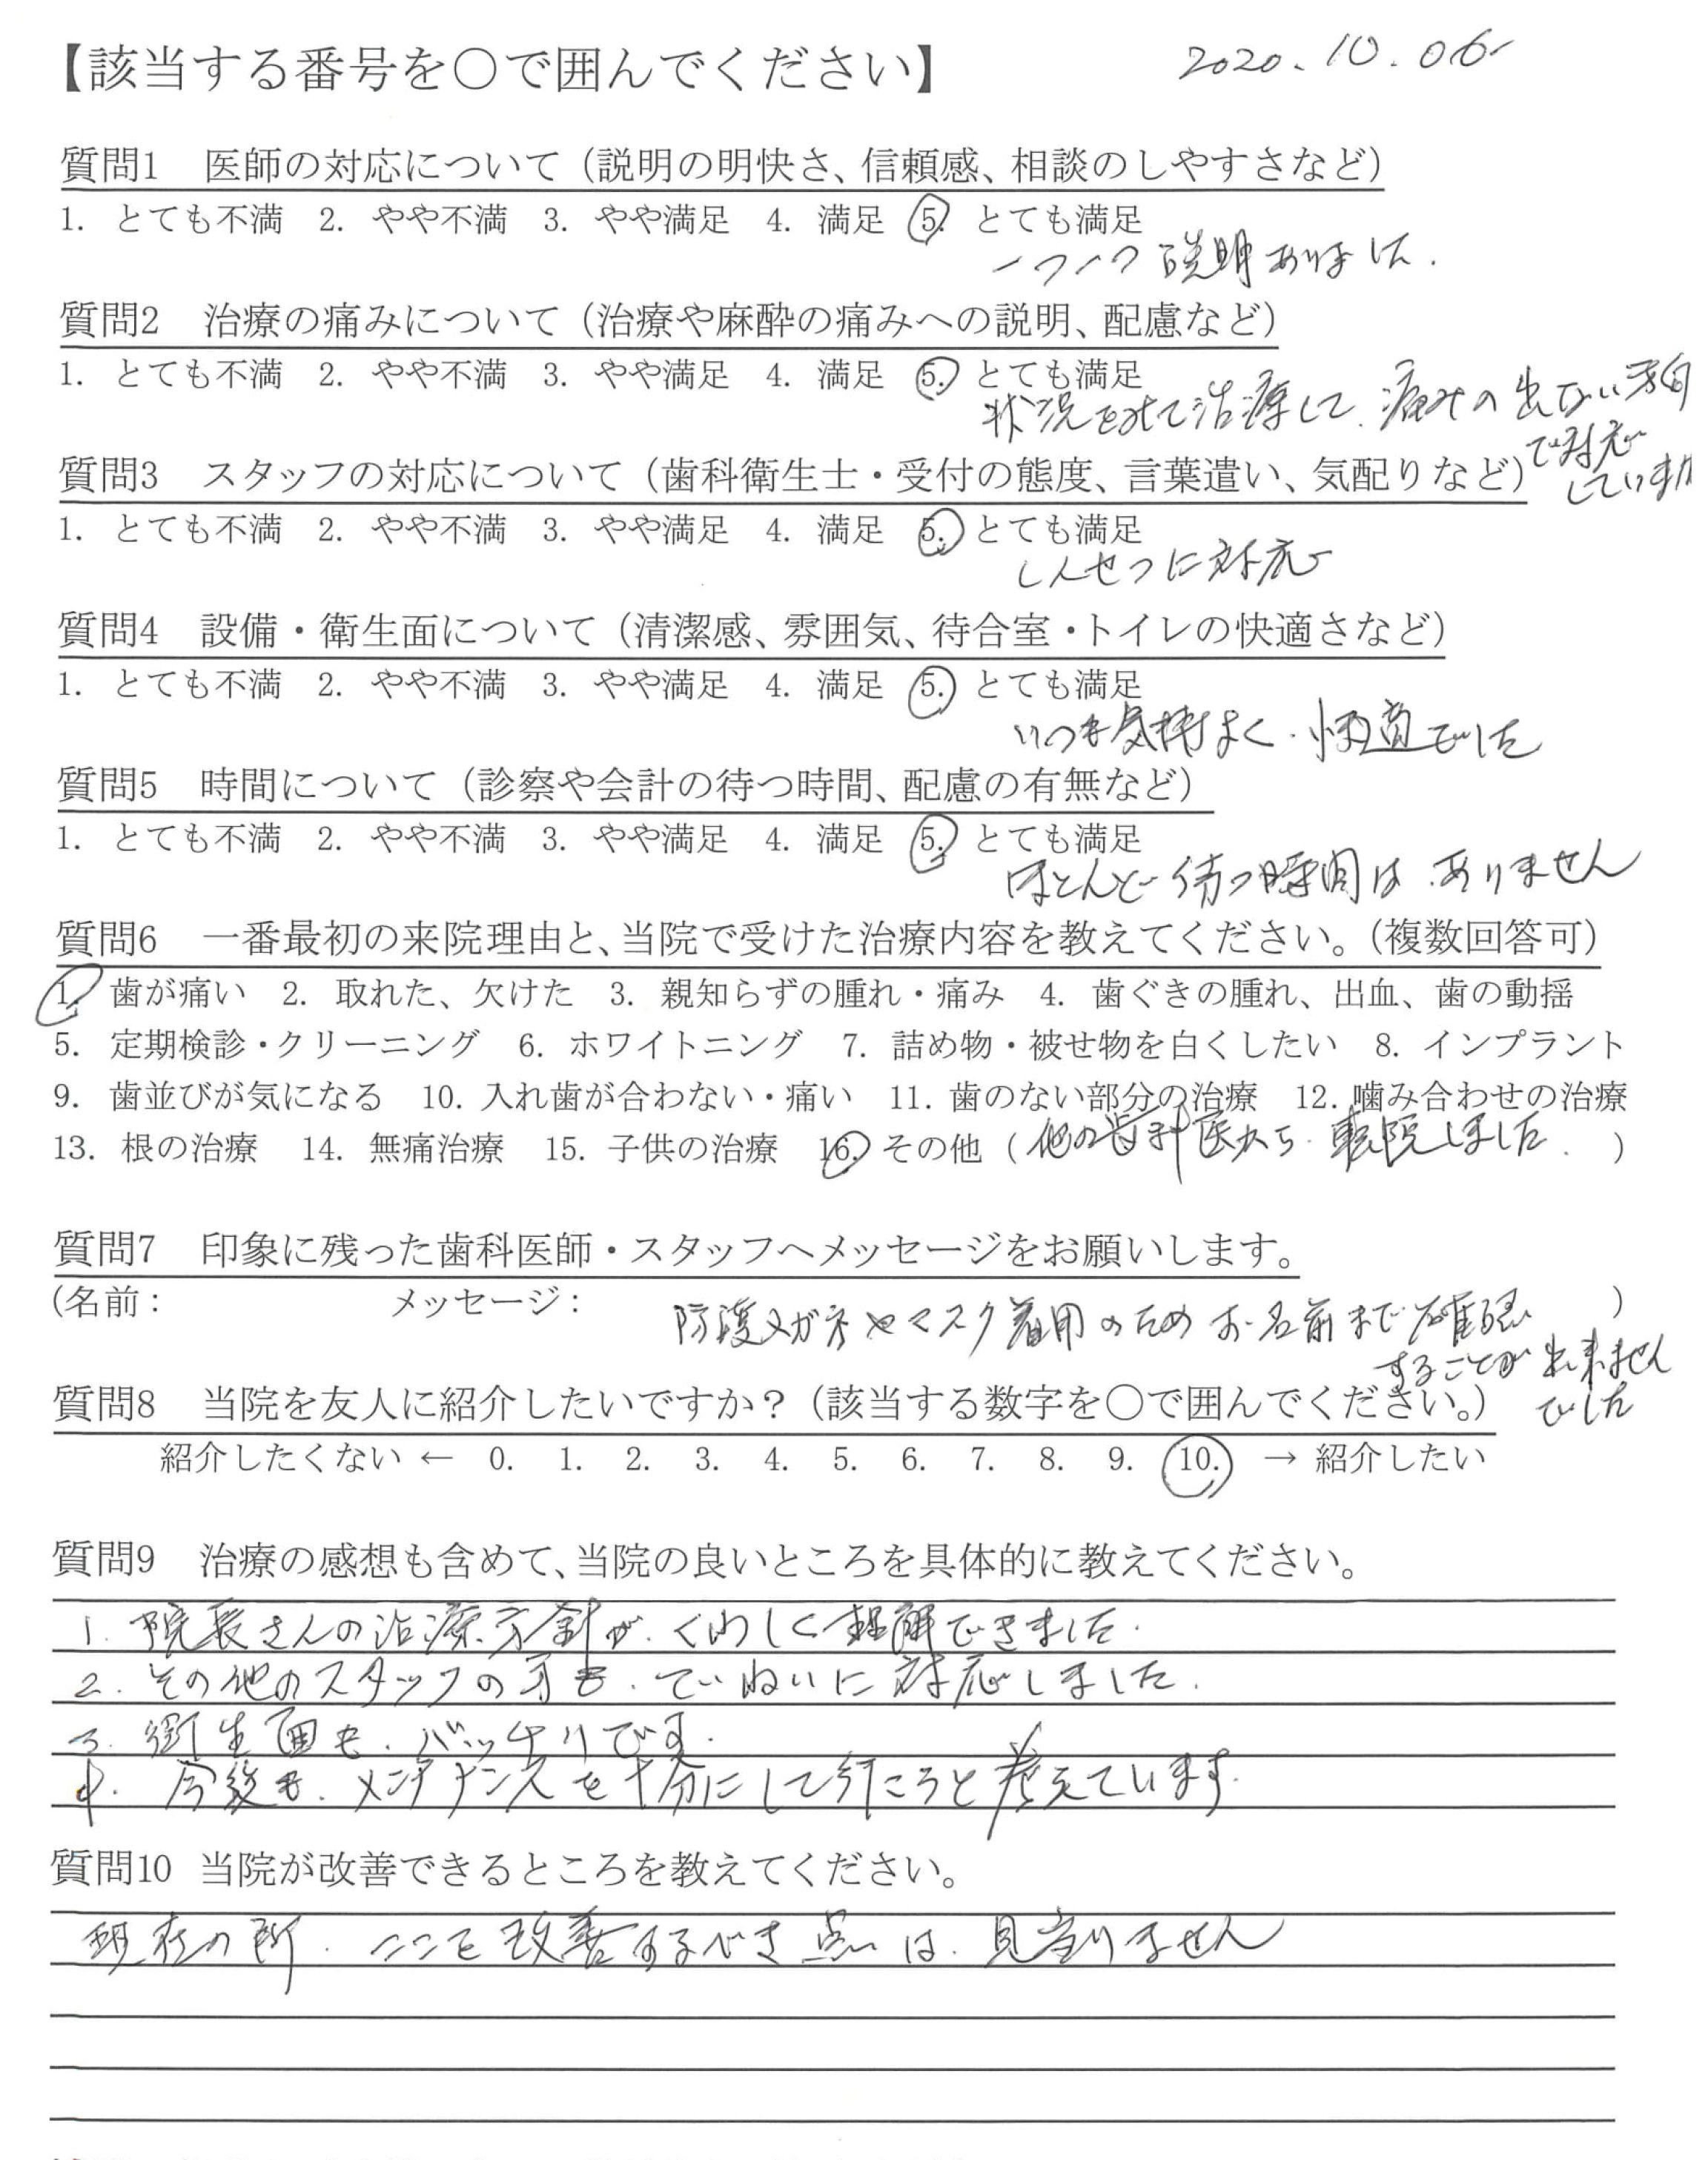 【該当する番号を〇で囲んでください】 2020.10.06
質問1 医師の対応について（説明の明快さ、信頼感、相談のしやすさなど）
1. とても不満 2. やや不満 3. やや満足 4. 満足 5. とても満足
一つ一つ説明ありました.
質問2 治療の痛みについて（治療や麻酔の痛みへの説明、配慮など）
1. とても不満 2. やや不満 3. やや満足 4. 満足 5. とても満足
状況をみて治療して.痛みの出ない方向
で対応
質問3 スタッフの対応について（歯科衛生士・受付の態度、言葉遣い、気配りなど）
していま
1. とても不満 2. やや不満 3. やや満足 4. 満足 5. とても満足
しんせつに対応
質問4 設備・衛生面について（清潔感、雰囲気、待合室・トイレの快適さなど）
1. とても不満 2. やや不満 3. やや満足 4. 満足 5. とても満足
いつも気持よく.快適でした
質問5 時間について（診察や会計の待つ時間、配慮の有無など）
1. とても不満 2. やや不満 3. やや満足 4. 満足 5. とても満足
ほとんど待つ時間は.ありません
質問6 一番最初の来院理由と、当院で受けた治療内容を教えてください。（複数回答可）
1. 歯が痛い 2. 取れた、欠けた 3. 親知らずの腫れ・痛み 4. 歯ぐきの腫れ、出血、歯の動揺
5. 定期検診・クリーニング 6. ホワイトニング 7. 詰め物・被せ物を白くしたい 8. インプラント
9. 歯並びが気になる 10. 入れ歯が合わない・痛い 11. 歯のない部分の治療 12. 噛み合わせの治療
13. 根の治療 14. 無痛治療 15. 子供の治療 16. その他（他の歯科医から.転院しました.）
質問7 印象に残った歯科医師・スタッフへメッセージをお願いします。
（名前： メッセージ： 防護メガネやマスク着用のためお名前まで確認 ）
することが出来ません
でした
質問8 当院を友人に紹介したいですか？（該当する数字を〇で囲んでください。）
紹介したくない ← 0. 1. 2. 3. 4. 5. 6. 7. 8. 9. 10. → 紹介したい
質問9 治療の感想も含めて、当院の良いところを具体的に教えてください。
1. 院長さんの治療方針が.くわしく理解できました.
2. その他のスタッフの方も.ていねいに対応しました.
3. 衛生面も.バッチリです.
4. 今後も.メンテナンスを十分にして行こうと考えています.
質問10 当院が改善できるところを教えてください。
現在の所.ここを改善するべき点は.見当りません